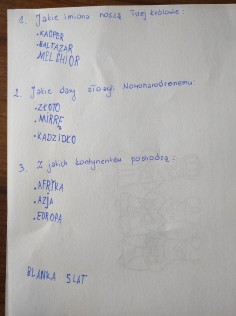 1. Jakie imiona noszą Trzej Królowie:
• KACPER
• BALTAZAR
MELCHIOR
2. Jakie dary złożyli Nowonarodzonemu:
• ZŁOTO
• MIRRĘ
• KADZIDŁO
3. Z jakich kontynentów pochodzą:
• AFRYKA
• AZJA
• EUROPA
BLANKA 5 LAT